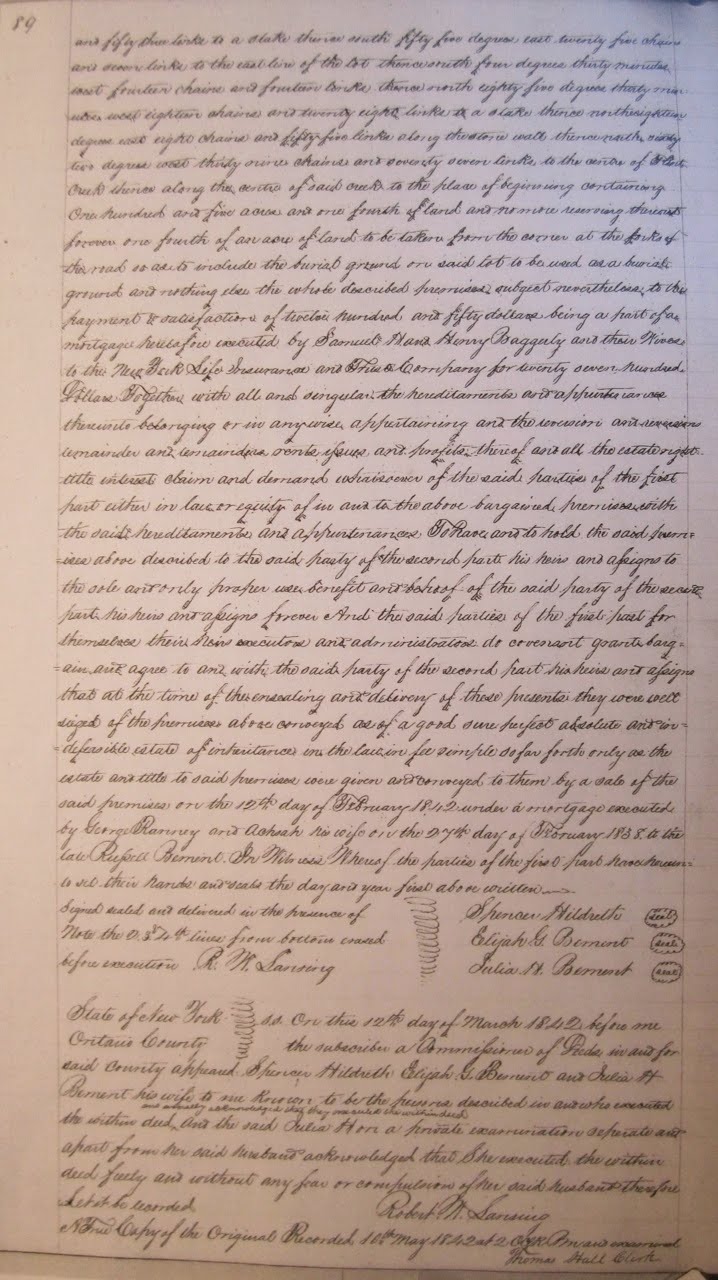 89
and fifty three links to a stake thence south fifty five degrees east twenty five chains
and seven links to the east line of the lot thence south four degrees thirty minutes
west fourteen chains and fourteen links thence north eighty five degrees thirty min
utes west eighteen chains and twenty eight links to a stake thence north eighteen
degrees east eight chains and fifty five links along the stone wall thence north
two degrees west thirty nine chains and seventy seven links to the centre of Flint
Creek thence along the centre of said creek to the place of beginning containing
One hundred and five acres and one fourth of land and no more reserving thereout
forever one fourth of an acre of land to be taken from the corner at the forks of
the road so as to include the burial ground on said lot to be used as a burial
ground and nothing else the whole described premises subject nevertheless to the
payment & satisfaction of twelve hundred and fifty dollars being a part of a
mortgage heretofore executed by Samuel Hand Henry Baggerly and their Wives
to the New York Life Insurance and Trust Company for twenty seven hundred
Dollars Together with all and singular the hereditaments and appurtenances
thereunto belonging or in anywise appertaining and the reversion and reversions
remainder and remainders rents issues and profits thereof and all the estate right
title interest claim and demand whatsoever of the said parties of the first
part either in law or equity of in and to the above bargained premises with
the said hereditaments and appurtenances To have and to hold the said prem=
=ises above described to the said party of the second part his heirs and assigns to
the sole and only proper use benefit and behoof of the said party of the second
part his heirs and assigns forever And the said parties of the first part for
themselves their heirs executors and administrators do covenant grant barg=
=ain and agree to and with the said party of the second part his heirs and assigns
that at the time of the ensealing and delivery of these presents they were well
seized of the premises above conveyed as of a good sure perfect absolute and in=
=defeasible estate of inheritance in the law in fee simple so far forth only as the
estate and title to said premises were given and conveyed to them by a sale of the
said premises on the 12th day of February 1842 under a mortgage executed
by George Ranney and Achsah his wife on the 27th day of February 1838 to the
late Russell Bement. In Witness Whereof the parties of the first part have hereun=
to set their hands and seals the day and year first above written
Signed sealed and delivered in the presence of Spencer Hildreth seal
Note the 2. 3d 4th lines from bottom erased Elijah G. Bement seal
before execution R. W. Lansing Julia H. Bement seal
State of New York s.s. On this 12th day of March 1842 before me
Ontario County the subscriber a Commissioner of Deeds in and for
said County appeared Spencer Hildreth Elijah G. Bement and Julia H
Bement his wife to me known to be the persons described in and who executed
and severally acknowledged that they executed the within deed
the within deed And the said Julia H on a private examination seperate and
apart from her said husband acknowledged that She executed the within
deed freely and without any fear or compulsion of her said husband therefore
Let it be recorded Robert W. Lansing
A True Copy of the Original Recorded 10th May 1842 at 2 Oclk Pm and examined
Thomas Hall Clerk